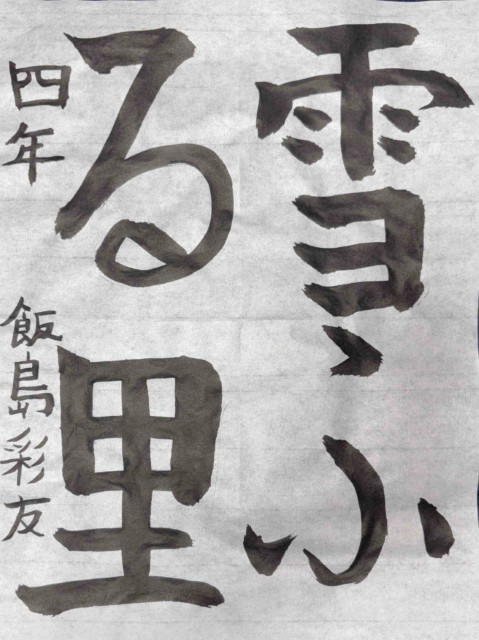 雪ふ
る里
四年 飯島彩友